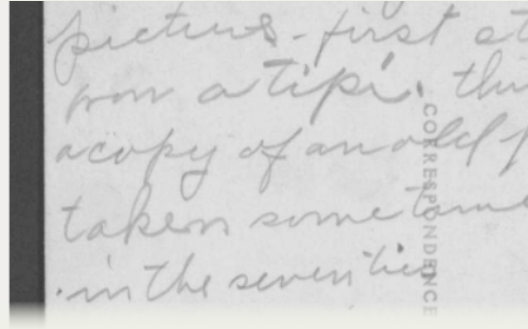 pictures - first
a tipi. this
a copy of an old
taken some time
in the seventies
CORRESPONDENCE